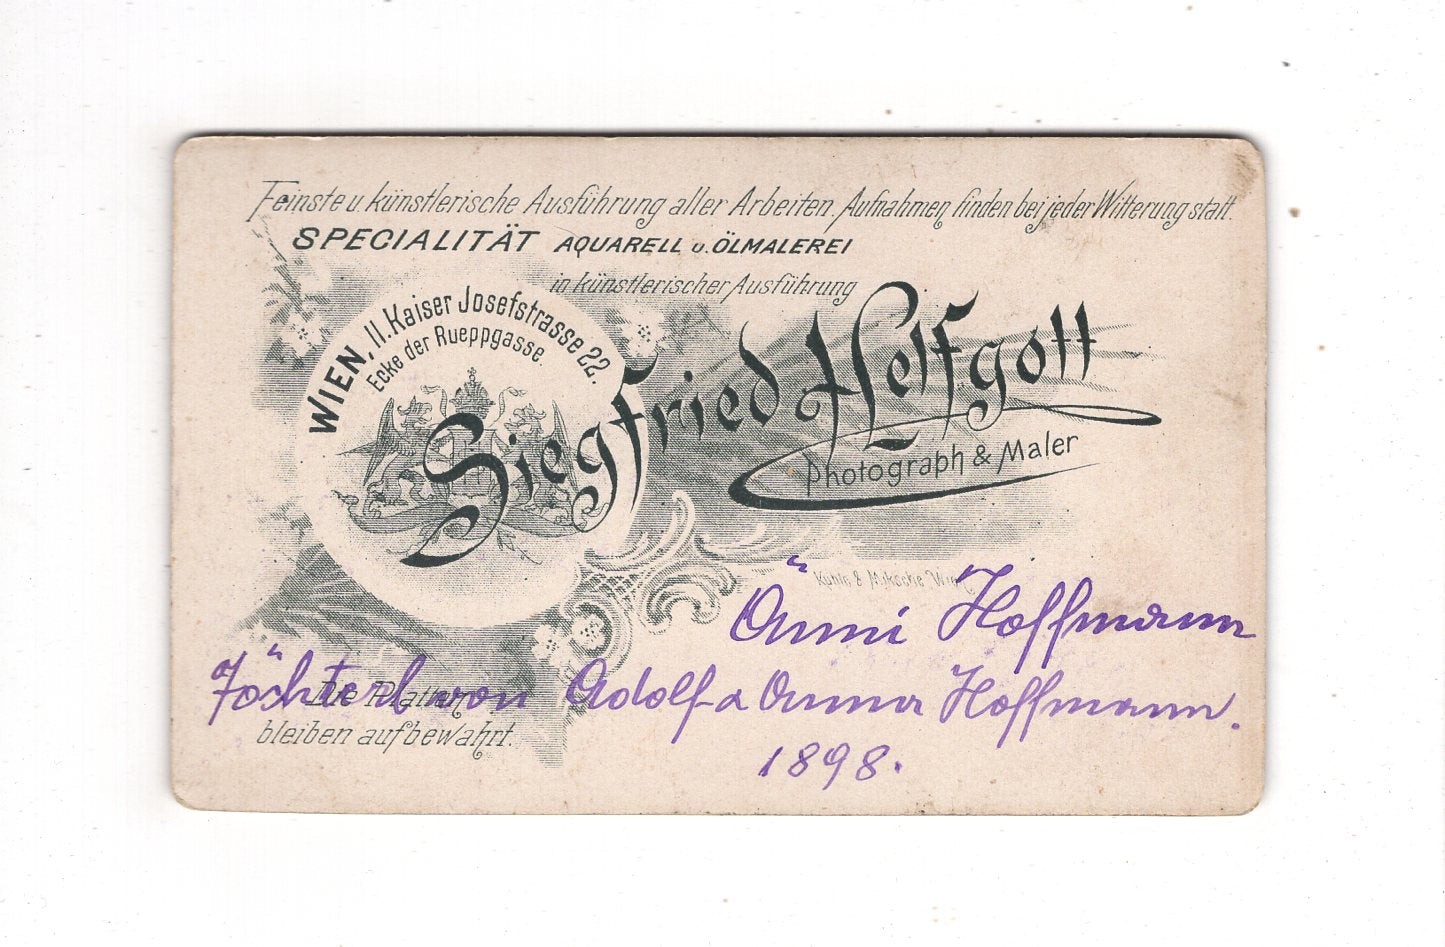 Feinste u. künstlerische Ausführung aller Arbeiten. Aufnahmen finden bei jeder Witterung statt.
SPECIALITÄT AQUARELL u. ÖLMALEREI
in künstlerischer Ausführung
WIEN, II. Kaiser Josefstrasse 22.
Ecke der Rueppgasse.
Siegfried Helfgott
Photograph & Maler
"
Anni Hoffmann
Töchterl von Adolf & Anna Hoffmann.
1898.
Die Platten
bleiben aufbewahrt.